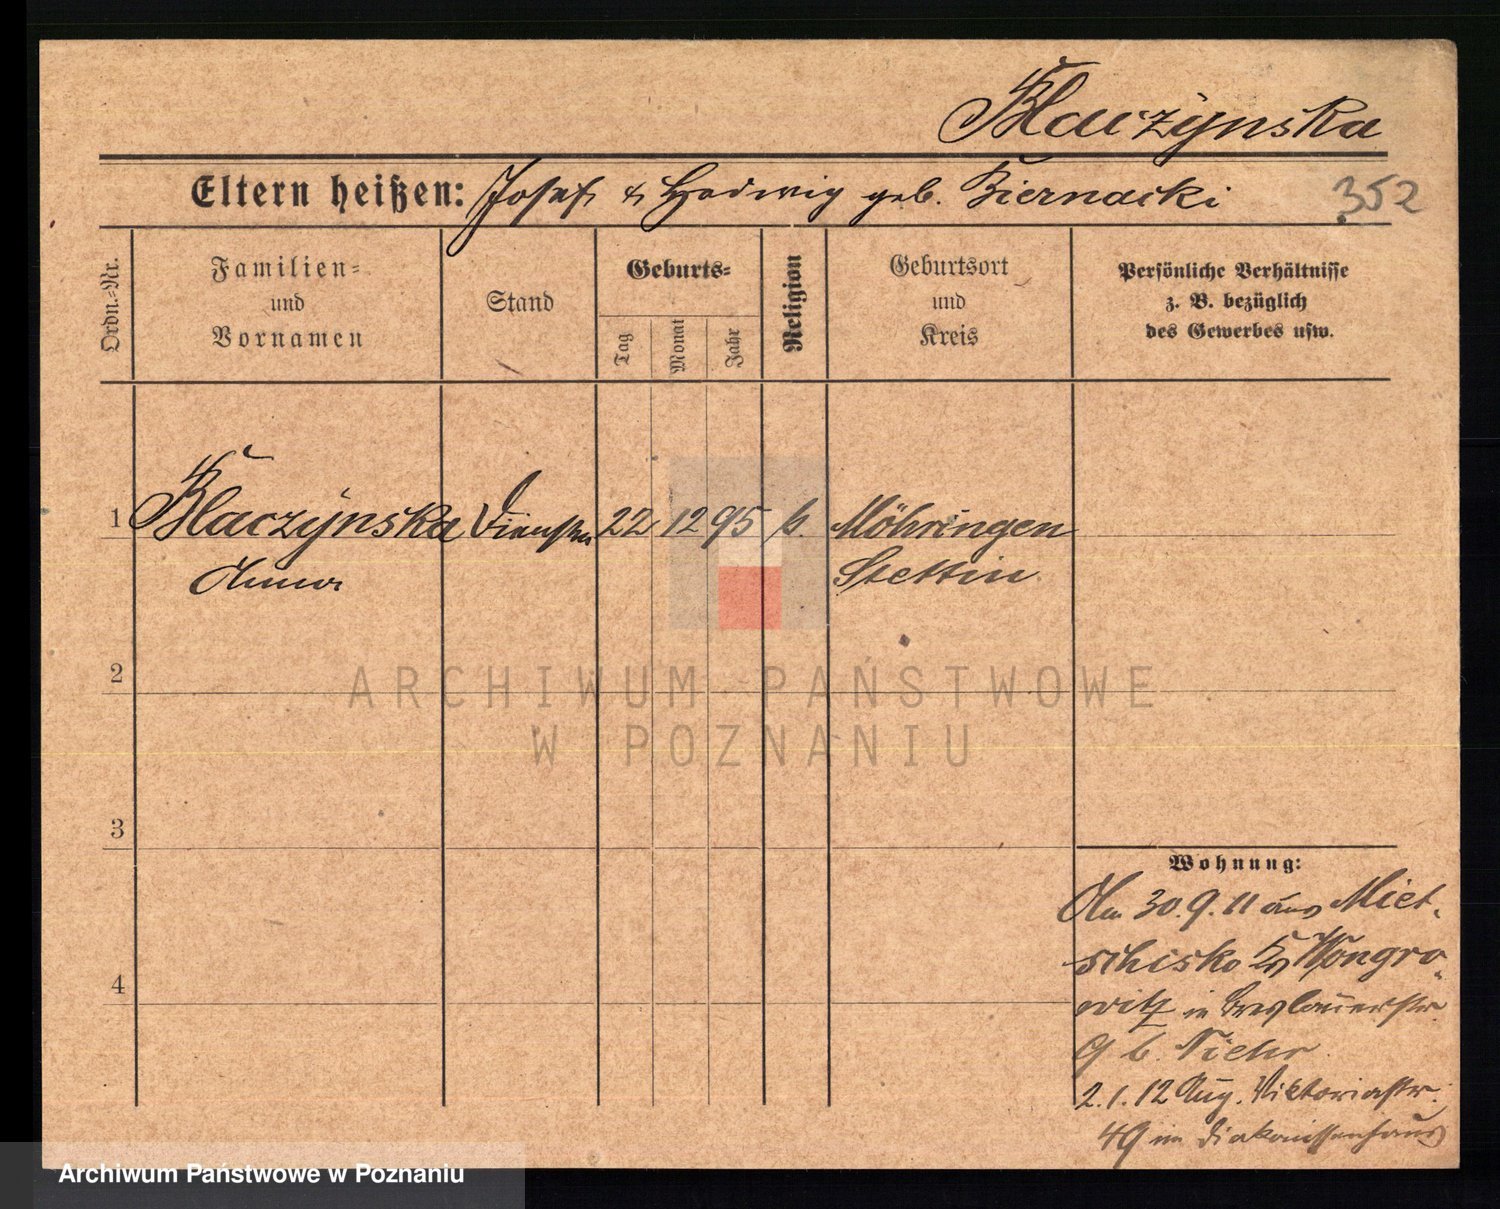 Klaczynska
Eltern heißen: Josef & Hedwig geb. Biernacki
352
Ordn.-Nr.
Familien-
und
Vornamen
Stand
Geburts-
Tag
Monat
Jahr
Religion
Geburtsort
und
Kreis
Persönliche Verhältnisse
z. B. bezüglich
des Gewerbes usw.
1 Klaczynska 22 12 95 k. Möhringen
Anna Stettin
2
ARCHIWUM PAŃSTWOWE
W POZNANIU
3
Wohnung:
Am 30.9.11 aus Miet-
schisko Kr Wongro-
4
witz in Breslauerstr
9 b.
2.1.12 Aug. Viktoriastr.
49 im Diakonissenhaus
Archiwum Państwowe w Poznaniu